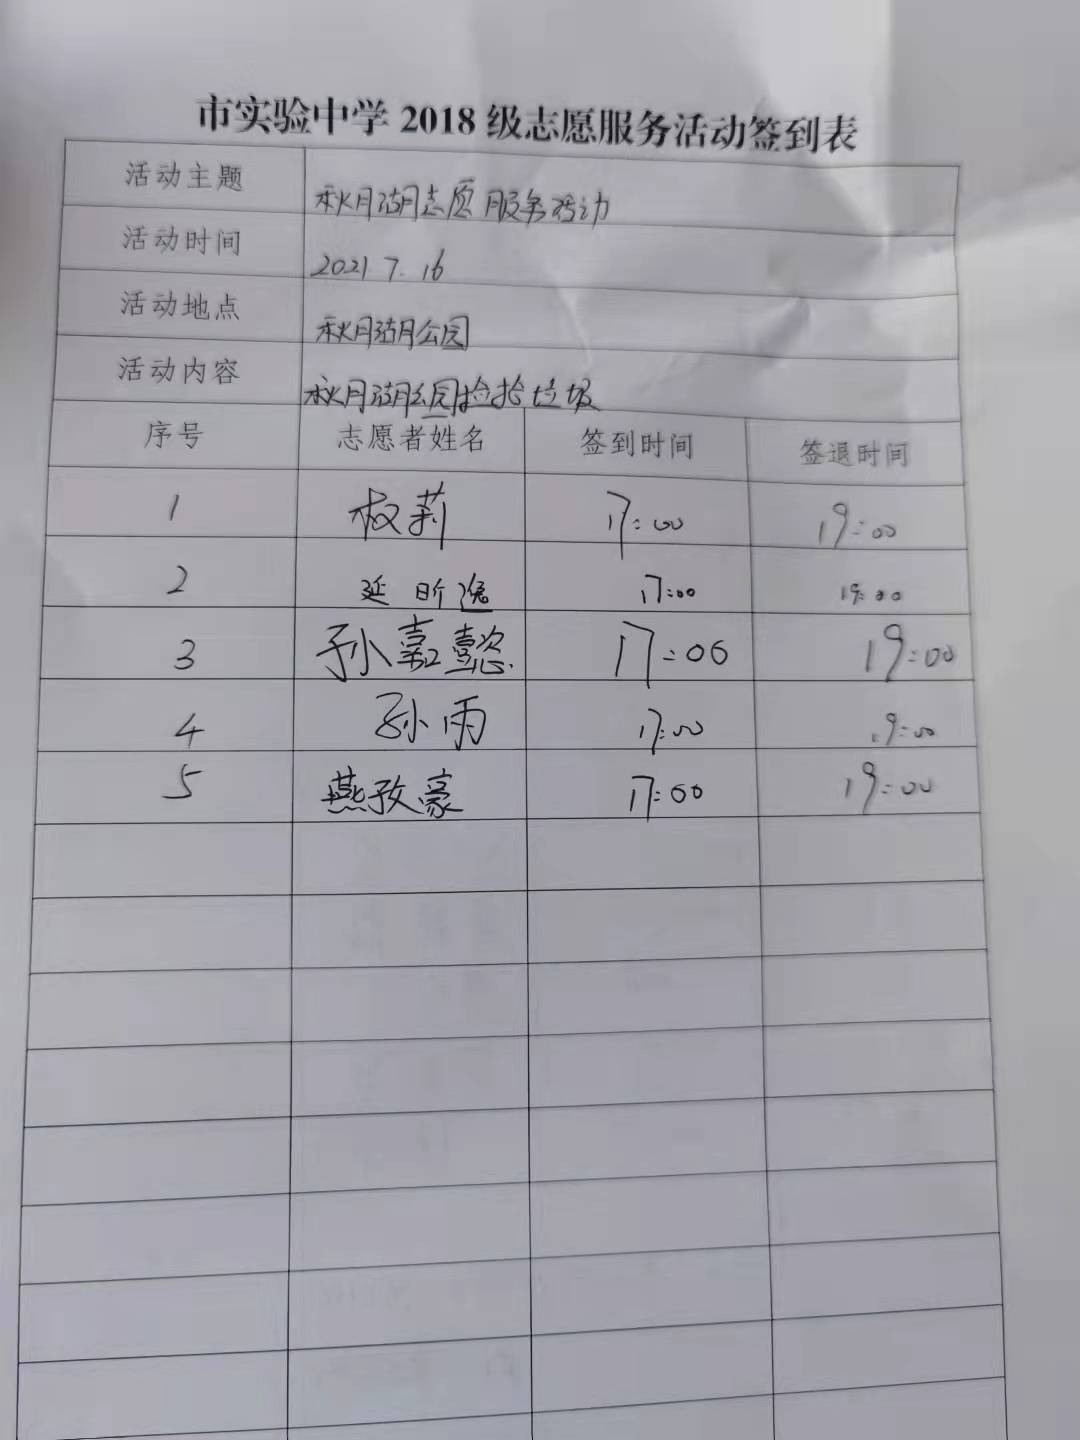 市实验中学2018级志愿服务活动签到表
活动主题 秋月湖志愿服务活动
活动时间 2021.7.16
活动地点 秋月湖公园
活动内容 秋月湖公园捡拾垃圾
序号 志愿者姓名 签到时间 签退时间
1 权莉 17:00 19:00
2 延昕逸 17:00 19:00
3 孙嘉懿 17:00 19:00
4 孙雨 17:00 19:00
5 燕孜豪 17:00 19:00